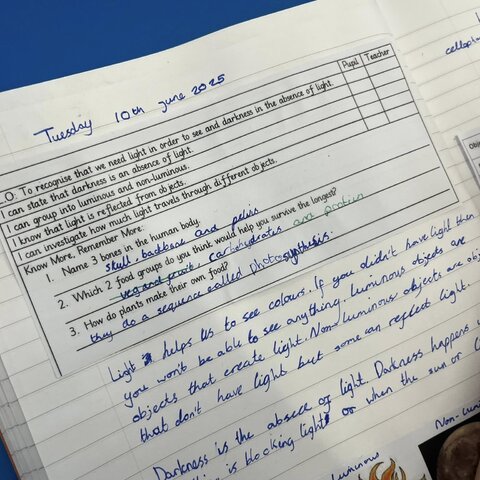 Tuesday 10th June 2025
Pupil Teacher
L.O: To recognise that we need light in order to see and darkness in the absence of light.
I can state that darkness is an absence of light.
I can group into luminous and non-luminous.
I know that light is reflected from objects.
I can investigate how much light travels through different objects.
Know More. Remember More:
1. Name 3 bones in the human body.
skull, backbone and pelvis
2. Which 2 food groups do you think would help you survive the longest?
veg and fruit, carbohydrates and protien
3. How do plants make their own food?
they do a sequence called photosynthesis.
Light helps us to see colours. If you didn't have light then
you won't be able to see anything. Luminous objects are
objects that create light. Non-luminous objects are obj
that don't have light but some can reflect light.
Darkness is the absence of light. Darkness happens
is blocking light or when the sun or
luminous
Non-lumi
cellop
Obje